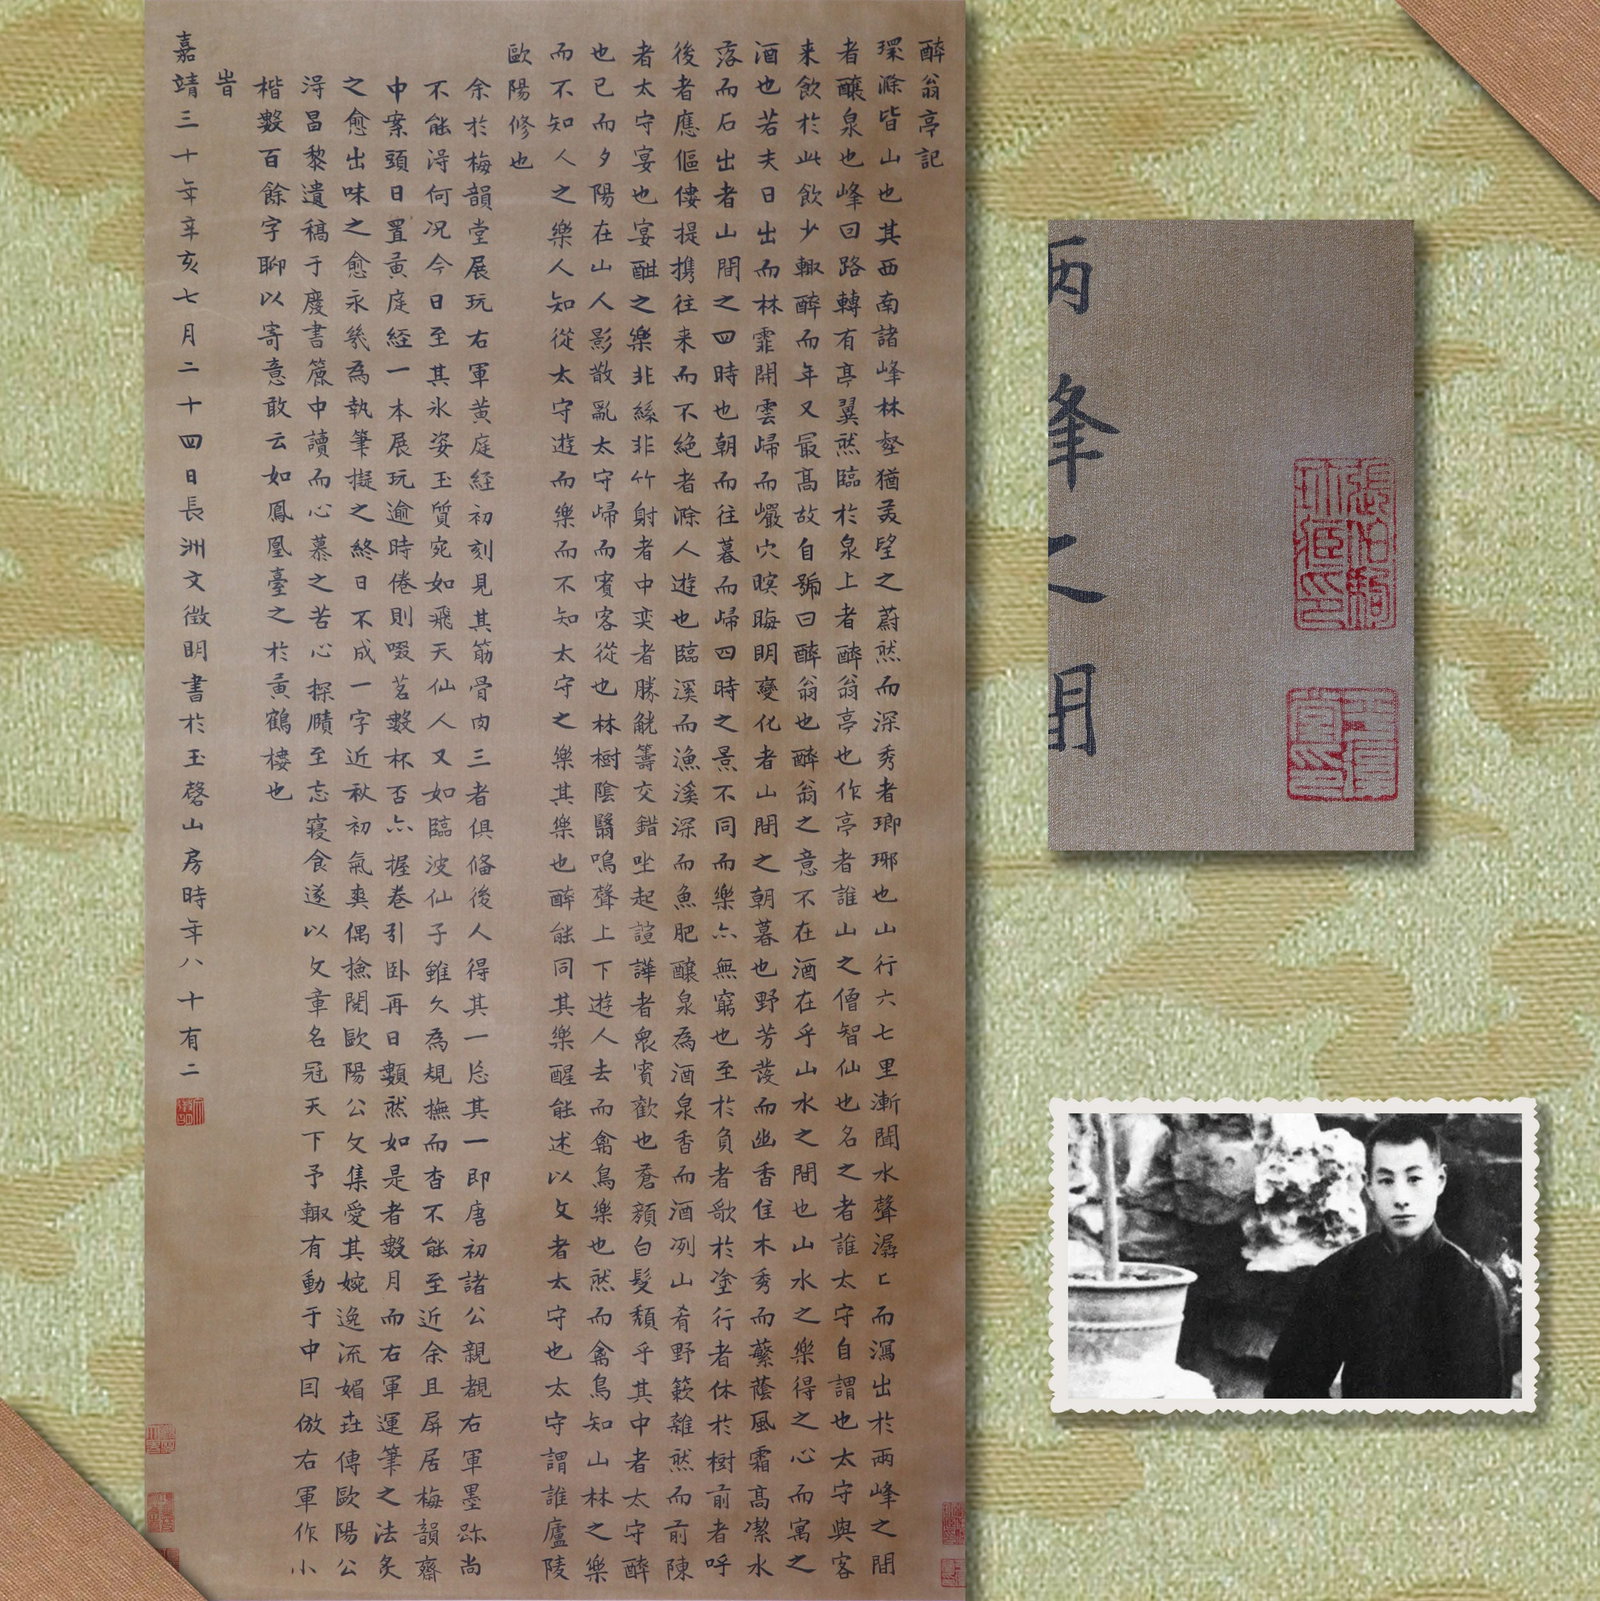 醉翁亭記
環滁皆山也其西南諸峰林壑猶美望之蔚然而深秀者瑯琊也山行六七里漸聞水聲潺〻而瀉出於兩峰之間
者釀泉也峰回路轉有亭翼然臨於泉上者醉翁亭也作亭者誰山之僧智仙也名之者誰太守自謂也太守與客
来飲於此飲少輒醉而年又最髙故自號曰醉翁也醉翁之意不在酒在乎山水之間也山水之樂得之心而寓之
酒也若夫日出而林霏開雲歸而巖穴暝晦明變化者山間之朝暮也野芳發而幽香佳木秀而蘩蔭風霜髙潔水
落而石出者山間之四時也朝而往暮而歸四時之景不同而樂亦無窮也至於負者歌於塗行者休於樹前者呼
後者應傴僂提携往来而不絕者滁人遊也臨溪而漁溪深而魚肥釀泉為酒泉香而酒冽山肴野蔌雜然而前陳
者太守宴也宴酣之樂非絲非竹射者中奕者勝觥籌交錯坐起諠譁者衆賓歡也蒼顏白髮頹乎其中者太守醉
也已而夕陽在山人影散亂太守歸而賓客從也林樹陰翳鳴聲上下遊人去而禽鳥樂也然而禽鳥知山林之樂
而不知人之樂人知從太守遊而樂而不知太守之樂其樂也醉能同其樂醒能述以文者太守也太守謂誰廬陵
歐陽修也
余於梅韻堂展玩右軍黃庭經初刻見其筋骨肉三者俱備後人得其一忘其一即唐初諸公親覩右軍墨跡尚
不能淂何况今日至其氷姿玉質宛如飛天仙人又如臨波仙子雖久為規撫而杳不能至近余且屏居梅韻齋
中案頭日置黃庭經一本展玩逾時倦則啜茗數杯否亦握卷引卧再日數然如是者數月而右軍運筆之法炙
之愈出味之愈永幾為執筆擬之終日不成一字近秋初氣爽偶撿閱歐陽公文集愛其婉逸流媚莊傳歐陽公
淂昌黎遺稿于慶書簏中讀而心慕之苦心探賾至忘寢食遂以文章名冠天下予輒有動于中囙倣右軍作小
楷數百餘字聊以寄意敢云如鳳凰臺之於黃鶴樓也
旹
嘉靖三十年辛亥七月二十四日長洲文徵明書於玉磬山房時年八十有二
兩峰之間
張伯駒